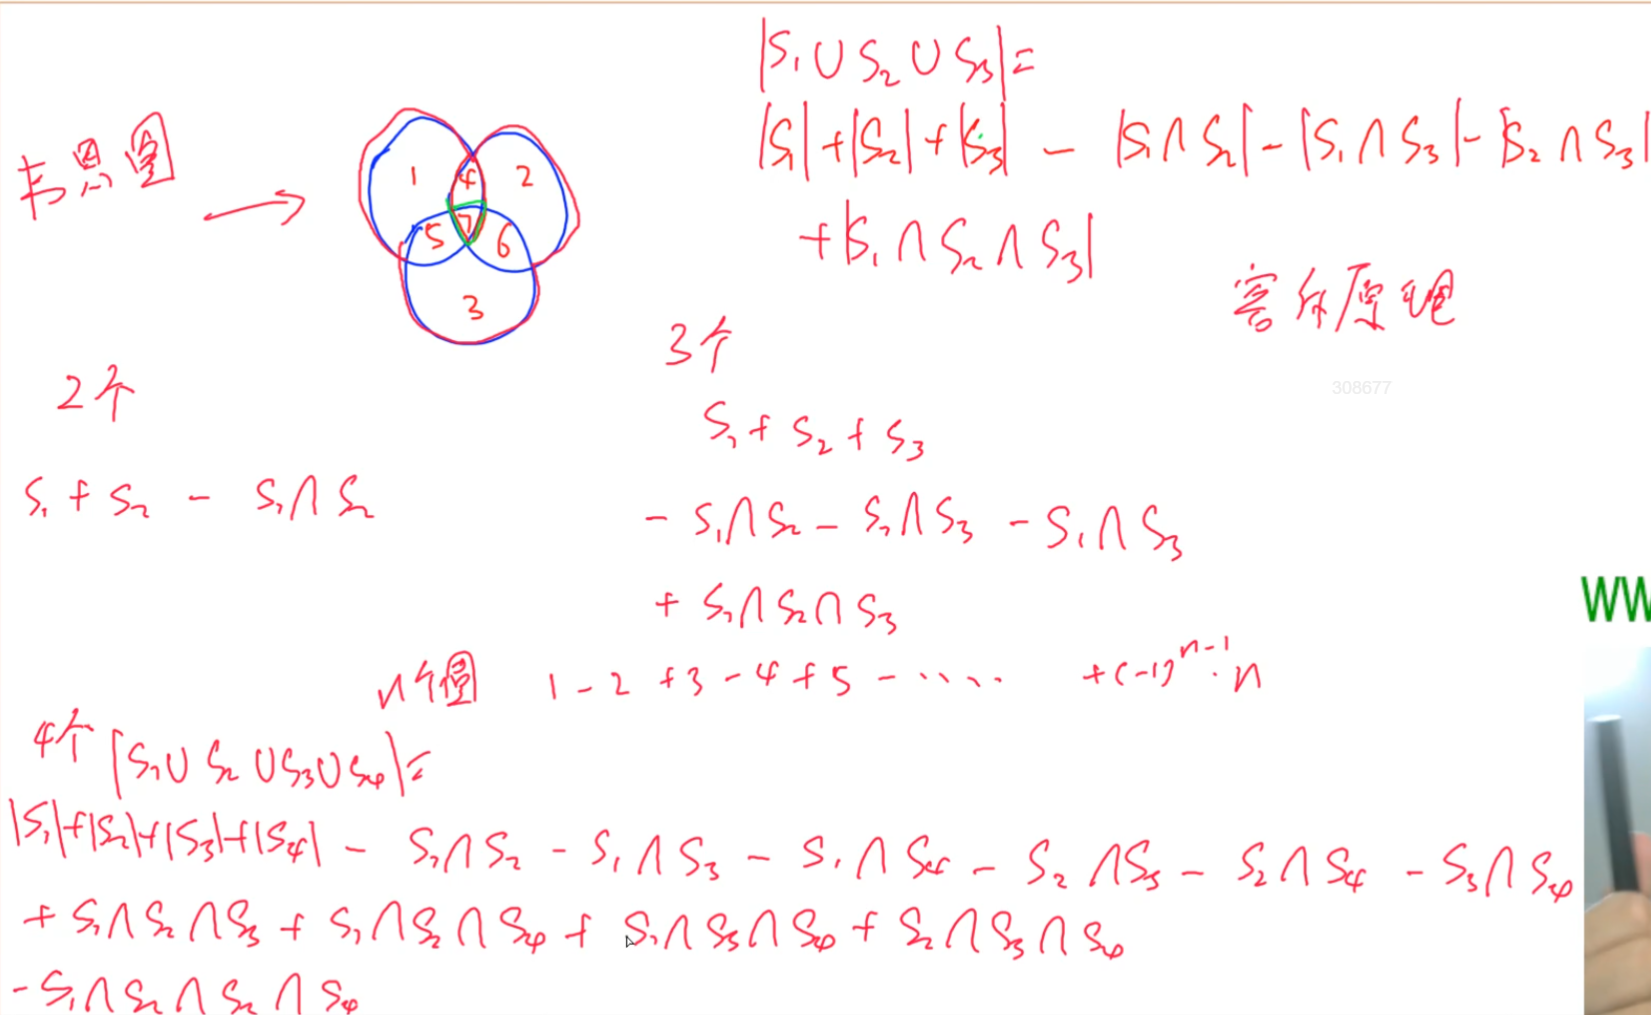 |S₁∪S₂∪S₃|=
|S₁|+|S₂|+|S₃| - |S₁∩S₂|-|S₁∩S₃|-|S₂∩S₃|
+|S₁∩S₂∩S₃|
韦恩图 →
1 4 2
5 7 6
3
容斥原理
308677
2个
S₁+S₂ - S₁∩S₂
3个
S₁+S₂+S₃
- S₁∩S₂ - S₂∩S₃ - S₁∩S₃
+ S₁∩S₂∩S₃
WW
n个圆 1-2+3-4+5-····· +(-1)ⁿ⁻¹·n
4个 |S₁∪S₂∪S₃∪S₄|=
|S₁|+|S₂|+|S₃|+|S₄| - S₁∩S₂ - S₁∩S₃ - S₁∩S₄ - S₂∩S₃ - S₂∩S₄ - S₃∩S₄
+ S₁∩S₂∩S₃ + S₁∩S₂∩S₄ + S₁∩S₃∩S₄ + S₂∩S₃∩S₄
-S₁∩S₂∩S₂∩S₄